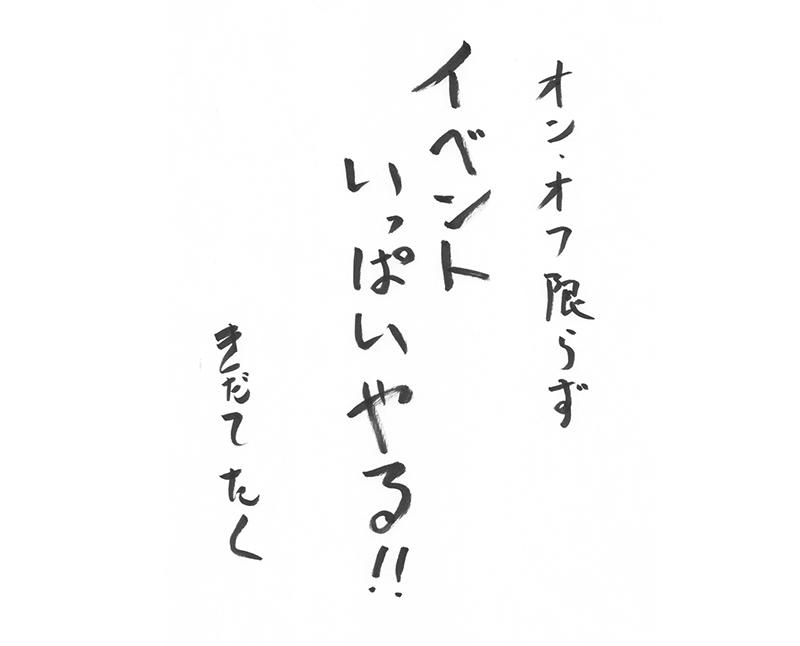 オン・オフ限らず
イベント
いっぱいやる!!
きだてたく